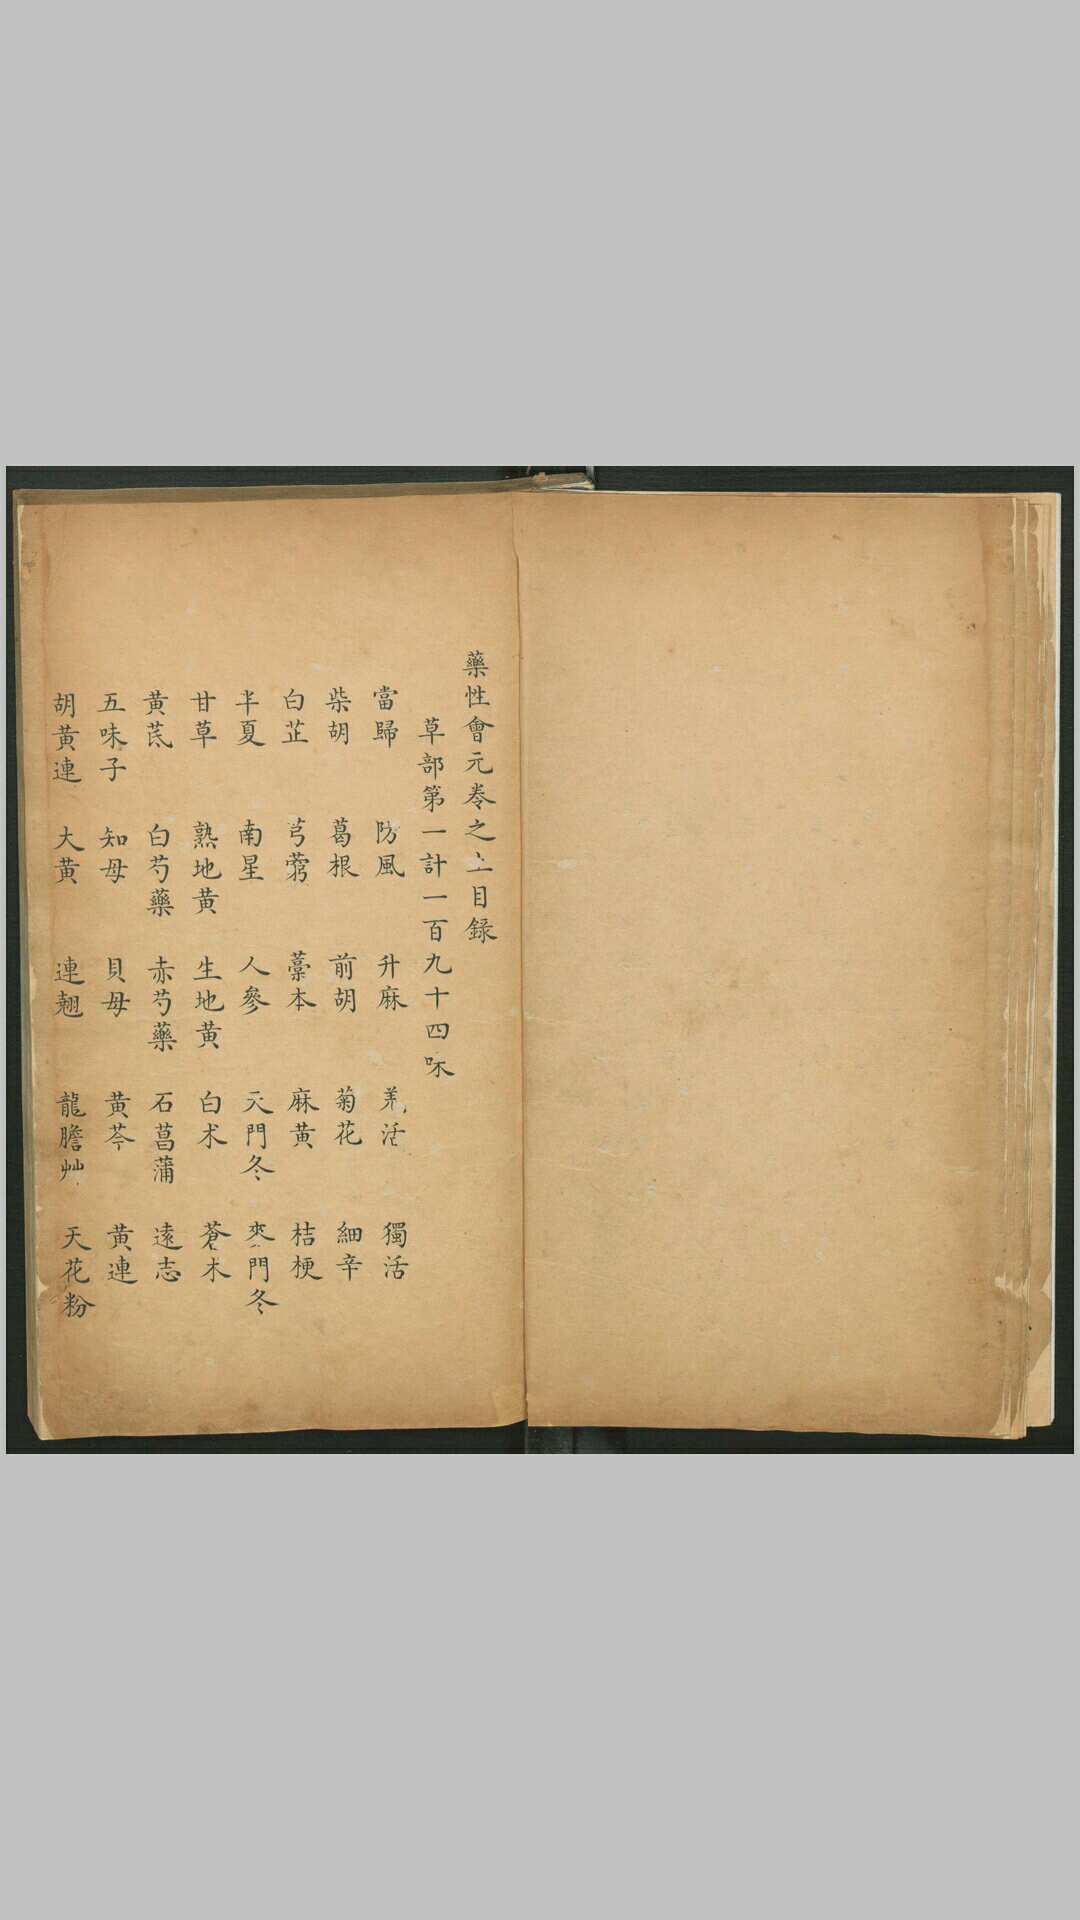 藥性會元卷之上目録
草部第一計一百九十四味
當歸 防風 升麻 羌活 獨活
柴胡 葛根 前胡 菊花 細辛
白芷 芎藭 藁本 麻黃 桔梗
半夏 南星 人參 天門冬 麥門冬
甘草 熟地黄 生地黄 白术 蒼术
黄芪 白芍藥 赤芍藥 石菖蒲 遠志
五味子 知母 貝母 黄芩 黄連
胡黄連 大黄 連翹 龍膽艸 天花粉